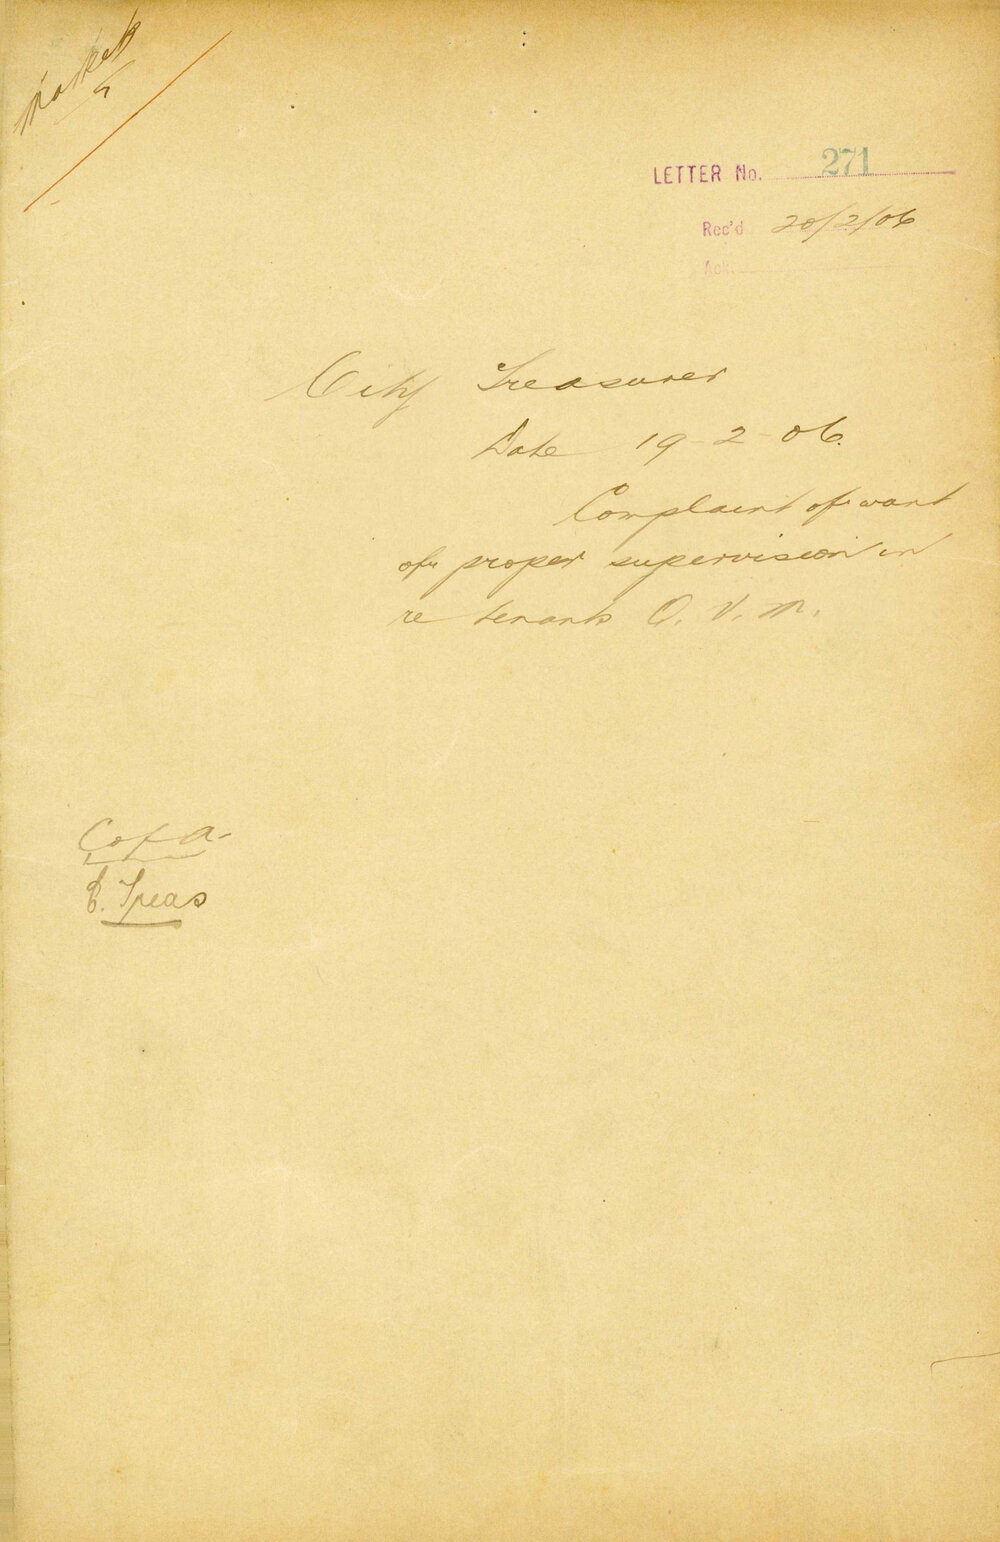 Market
LETTER No. 271
Rec'd 20/2/06
Ack.
City Treasurer
Date 19-2-06.
Complaint of want
of proper supervision in
re tenants Q. V. M.
C of A.
C. Treas